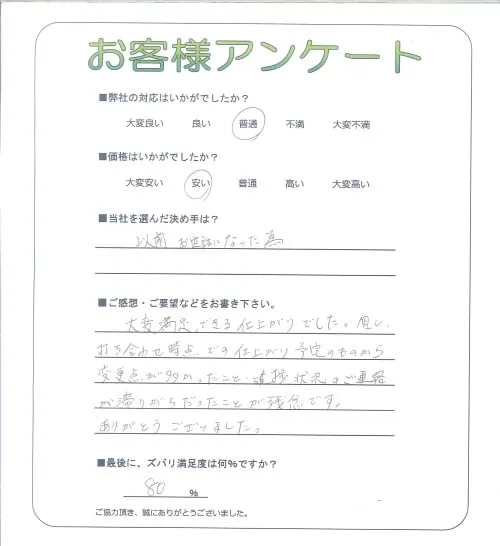 お客様アンケート
■弊社の対応はいかがでしたか？
大変良い 良い 普通 不満 大変不満
■価格はいかがでしたか？
大変安い 安い 普通 高い 大変高い
■当社を選んだ決め手は？
以前 お世話になった為
■ご感想・ご要望などをお書き下さい。
大変満足できる仕上がりでした。但し、
打ち合わせ時点での仕上がり予定のものから
変更点が多かったこと・進捗状況のご連絡
が滞りがちだったことが残念です。
ありがとうございました。
■最後に、ズバリ満足度は何%ですか？
80 %
ご協力頂き、誠にありがとうございました。